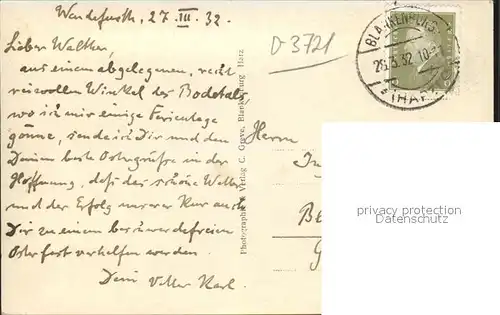 Wendefurth, 27. III. 32.
Lieber Walther,
aus einem abgelegenen, recht
reizvollen Winkel des Bodetals,
wo ich mir einige Ferientage
gönne, sende ich Dir und den
Deinen beste Ostergrüße in der
Hoffnung, daß das schöne Wetter
und der Erfolg unserer Kur auch
Dir zu einem beschwerdefreien
Osterfest verhelfen werden.
Dein Vetter Karl.
D 3721
Photographie Verlag C. Greve, Blankenburg Harz
BLANKENBURG
32 10-
(HARZ)
Herrn
privacy protection
Datenschutz